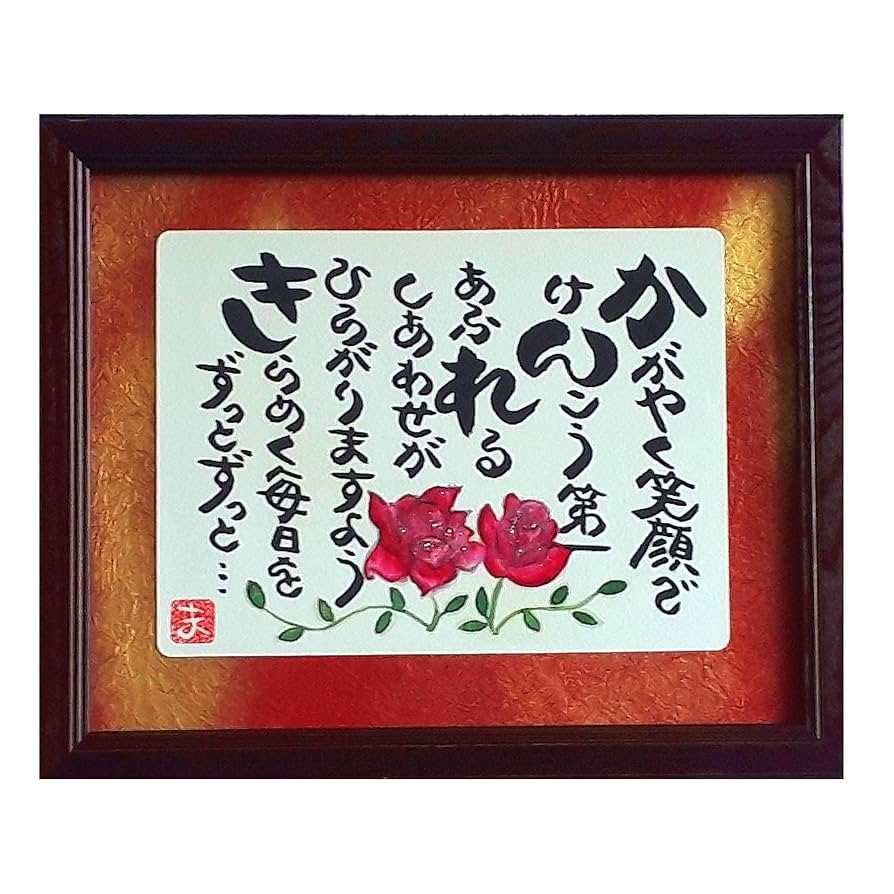 かがやく笑顔で
けんこう第一
あふれる
しあわせが
ひろがりますよう
きらめく毎日を
ずっとずっと…
ま